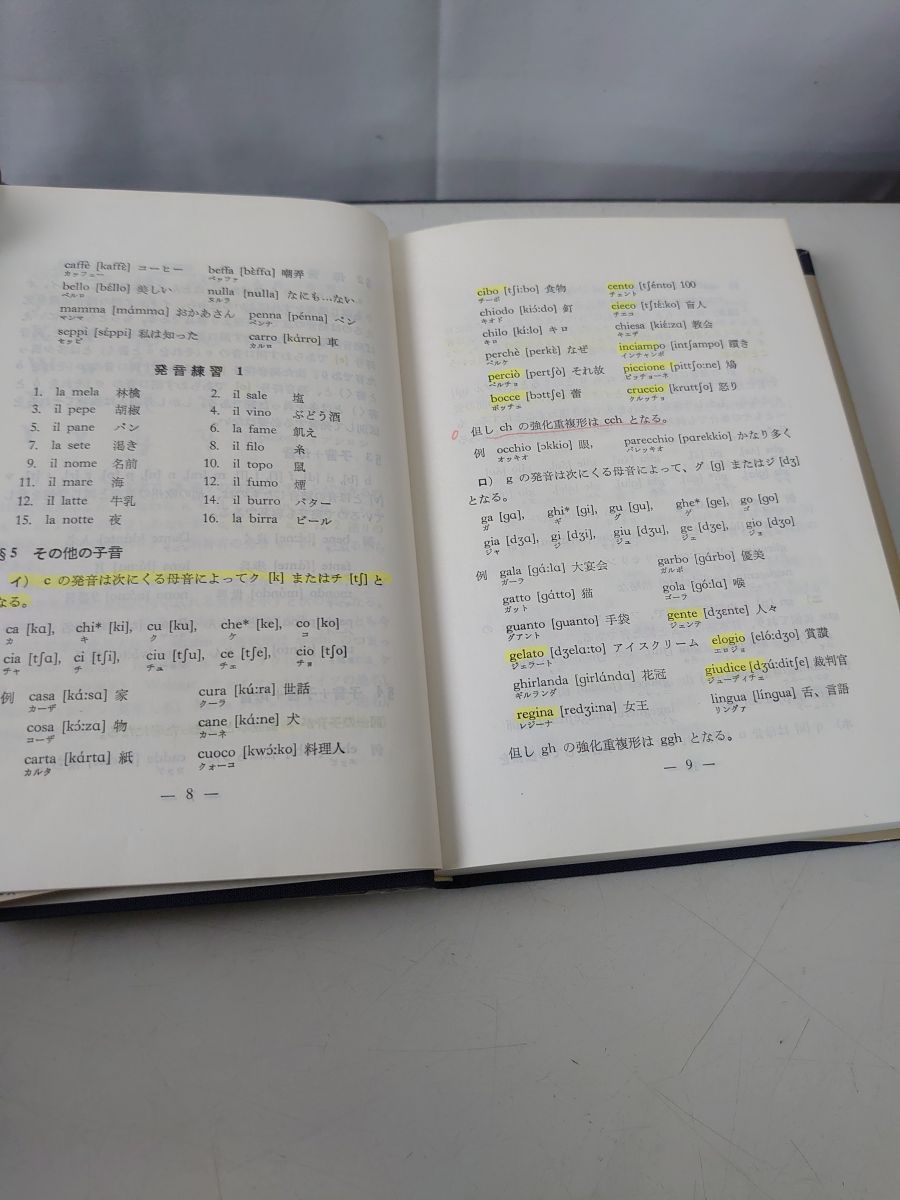 caffè [kaffɛ̀] コーヒー beffa [bɛ̀ffɑ] 嘲弄
カッフェー ベッファ
bello [béllo] 美しい nulla [nulla] なにも…ない
ベルロ ヌルラ
mamma [mámmɑ] おかあさん penna [pénna] ペン
マンマ ペンナ
seppi [sɛ́ppi] 私は知った carro [kárro] 車
セッピ カルロ
発音練習 1
1. la mela 林檎 2. il sale 塩
3. il pepe 胡椒 4. il vino ぶどう酒
5. il pane パン 6. la fame 飢え
7. la sete 渇き 8. il filo 糸
9. il nome 名前 10. il topo 鼠
11. il mare 海 12. il fumo 煙
12. il latte 牛乳 14. il burro バター
15. la notte 夜 16. la birra ビール
§5 その他の子音
イ) c の発音は次にくる母音によってク [k] またはチ [tʃ] と
なる。
ca [kɑ], chi* [ki], cu [ku], che* [ke], co [ko]
カ キ ク ケ コ
cia [tʃɑ], ci [tʃi], ciu [tʃu], ce [tʃe], cio [tʃo]
チャ チ チュ チェ チョ
例 casa [kɑ́:sɑ] 家 cura [kú:ra] 世話
カーザ クーラ
cosa [kɔ́:zɑ] 物 cane [kɑ́:ne] 犬
コーザ カーネ
carta [kɑ́rtɑ] 紙 cuoco [kwɔ́:ko] 料理人
カルタ クォーコ
— 8 —
cibo [tʃi:bo] 食物 cento [tʃénto] 100
チーボ チェント
chiodo [kiɔ́:do] 釘 cieco [tʃɛ́:ko] 盲人
キオド チエコ
chilo [kí:lo] キロ chiesa [kiɛ́:zɑ] 教会
キロ キエザ
perchè [perkè] なぜ inciampo [intʃampo]躓き
ペルケ インチャンポ
perciò [pertʃò] それ故 piccione [pittʃo:ne] 鳩
ペルチョ ピッチョーネ
bocce [bɔttʃe] 蕾 cruccio [kruttʃo] 怒り
ボッチェ クルッチョ
但し ch の強化重複形は cch となる。
例 occhio [ɔkkio] 眼, parecchio [parekkio] かなり多く
オッキオ パレッキオ
ロ) g の発音は次にくる母音によって、グ [g] またはジ [dʒ]
となる。
ga [gɑ], ghi* [gi], gu [gu], ghe* [ge], go [go]
ガ ギ グ ゲ ゴ
gia [dʒɑ], gi [dʒi], giu [dʒu], ge [dʒe], gio [dʒo]
ジャ ジ ジュ ジェ ジョ
例 gala [gɑ́:lɑ] 大宴会 garbo [gárbo] 優美
ガーラ ガルボ
gatto [gátto] 猫 gola [gó:lɑ] 喉
ガット ゴーラ
guanto [guanto] 手袋 gente [dʒɛnte] 人々
グアント ジェンテ
gelato [dʒelɑ:to] アイスクリーム elogio [eló:dʒo] 賞讃
ジェラート エロジョ
ghirlanda [girlándɑ] 花冠 giudice [dʒú:ditʃe] 裁判官
ギルランダ ジューディチェ
regina [redʒí:na] 女王 lingua [língua] 舌、言語
レジーナ リングァ
但し gh の強化重複形は ggh となる。
— 9 —